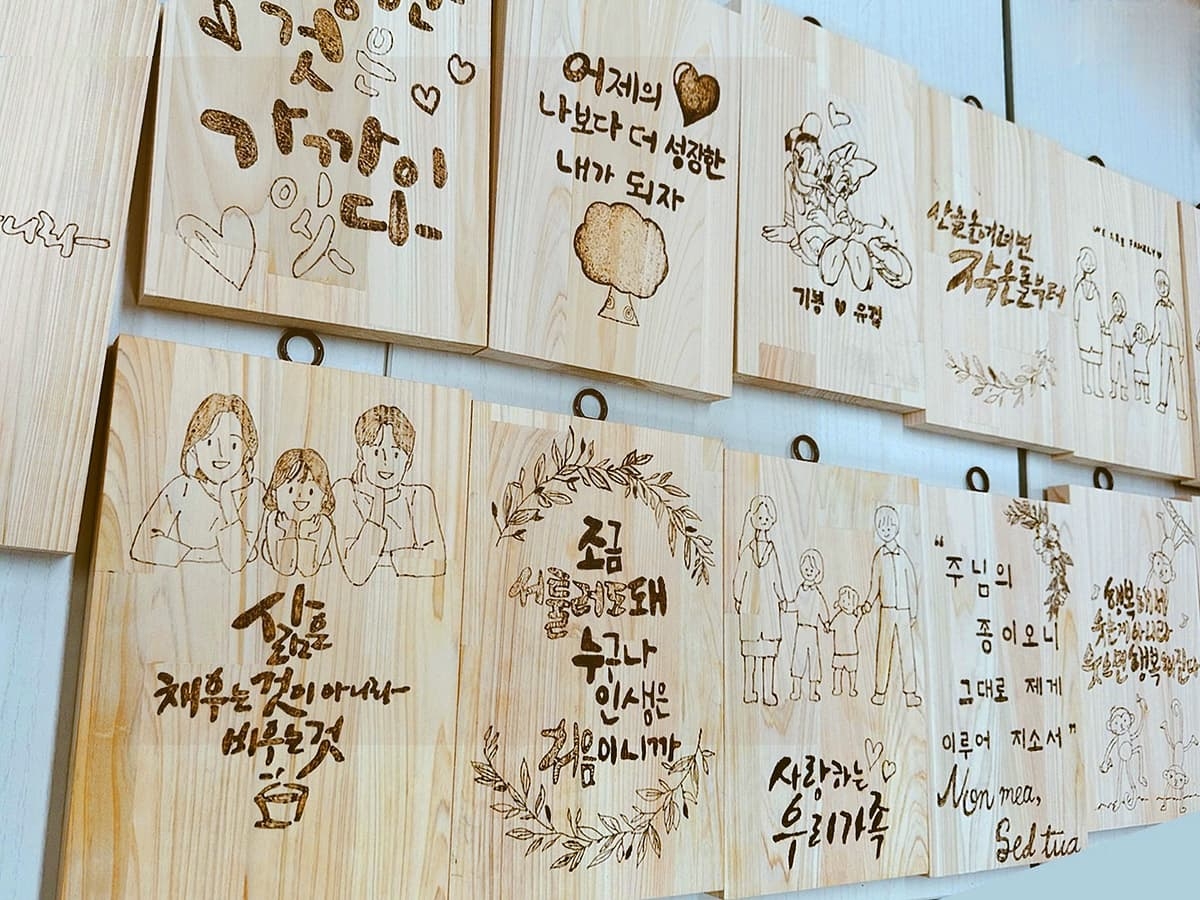 것은
가까이
있다
어제의
나보다 더 성장한
내가 되자
기봉 ♥ 유겸
산을 옮기려면
작은 돌부터
WE ARE FAMILY ♥
삶은
채우는 것이 아니라
비우는 것
조금
서툴러도 돼
누구나
인생은
처음이니까
사랑하는
우리가족
"주님의
종이오니
그대로 제게
이루어 지소서"
Non mea,
Sed tua
행복해서
웃는게 아니라
웃으면 행복해진다